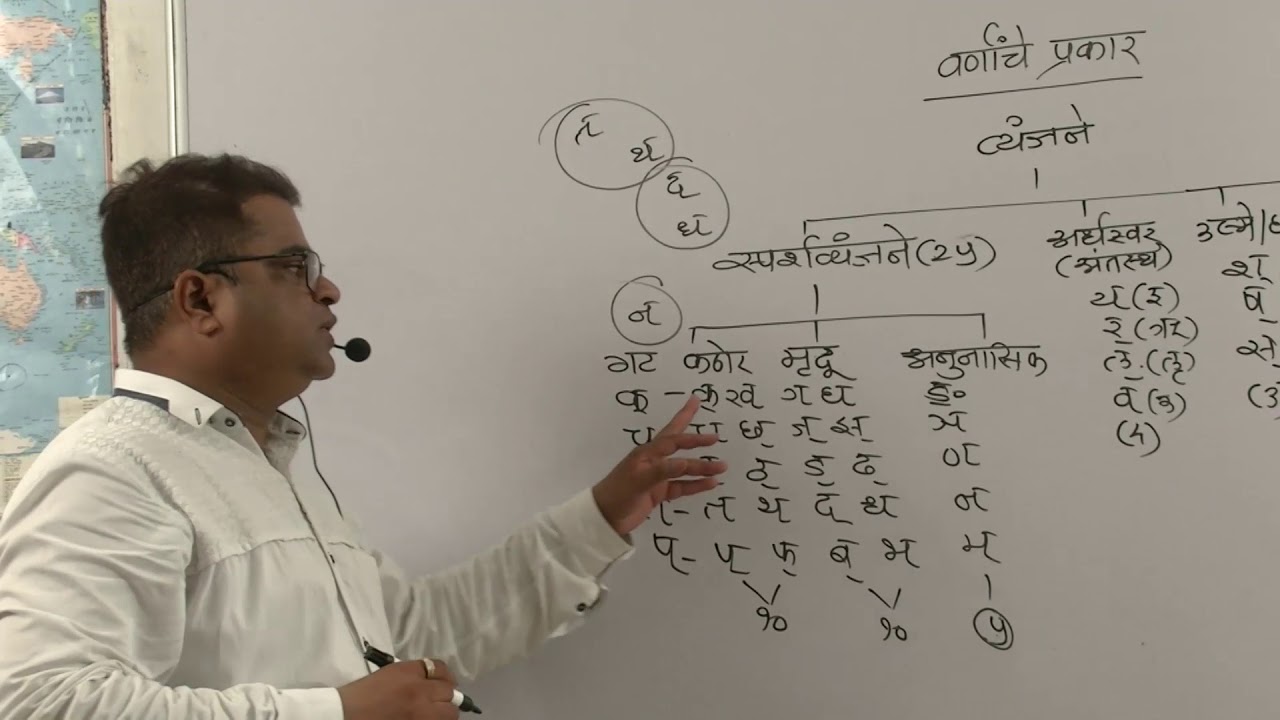 वर्णांचे प्रकार
व्यंजने
त् थ्
द् ध्
स्पर्शव्यंजने (२५) अर्धस्वर
(अंतस्थ)
न्
य् (इ) श्
र् (ऋ) ष्
ल् (लृ) स्
व् (उ)
(४)
गट कठोर मृदू अनुनासिक
क् - क् ख् ग् घ् ङ्
च छ् ज् झ् ञ
ठ् ड् ढ् ण
- त थ् द् ध् न
प् - प् फ् ब् भ् म्
१० १० ५